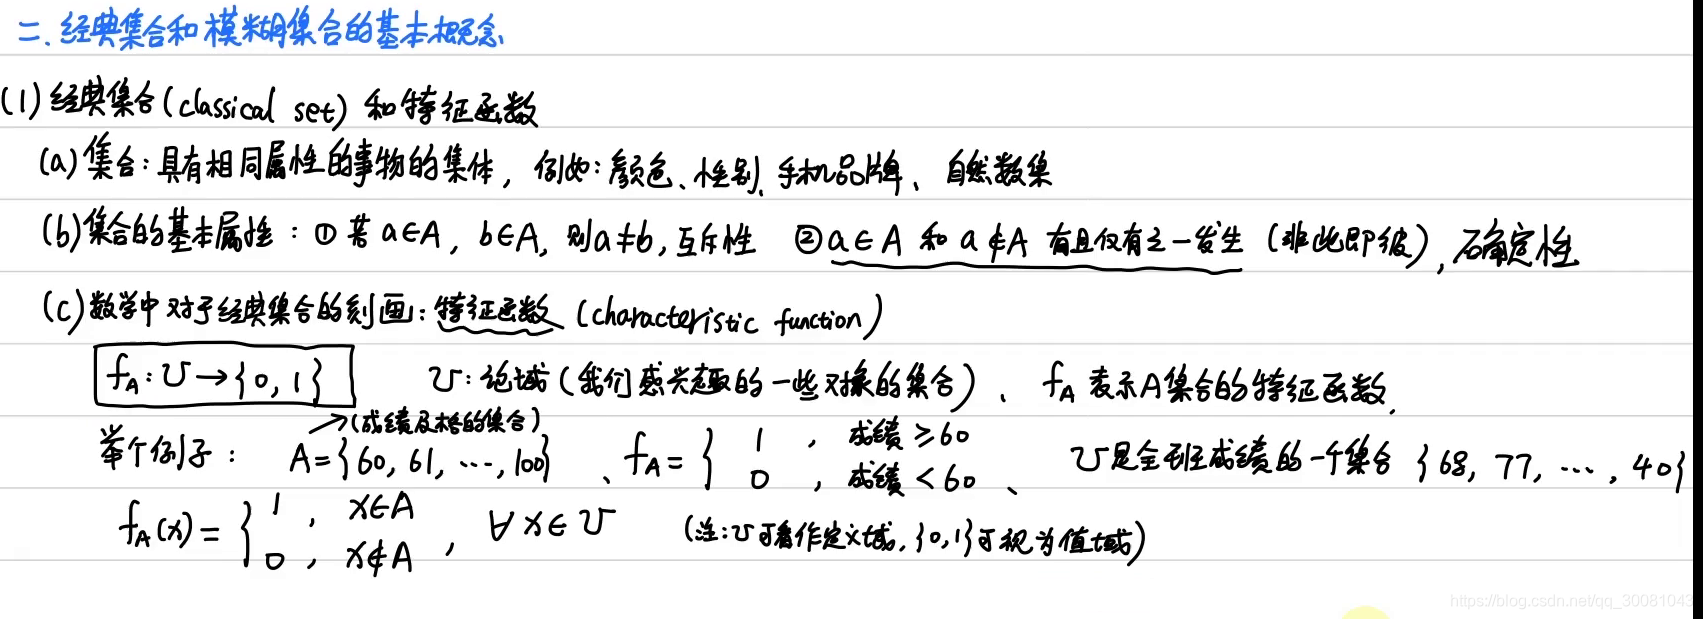 二. 经典集合和模糊集合的基本概念
(1) 经典集合(classical set) 和特征函数
(a) 集合: 具有相同属性的事物的集体, 例如: 颜色、性别、手机品牌、自然数集
(b) 集合的基本属性: ① 若 a∈A, b∈A, 则 a≠b, 互斥性 ② a∈A 和 a∉A 有且仅有之一发生 (非此即彼), 确定性
(c) 数学中对于经典集合的刻画: 特征函数 (characteristic function)
f_A: U→{0, 1} U: 论域 (我们感兴趣的一些对象的集合)、f_A 表示A集合的特征函数.
→(成绩及格的集合)
举个例子: A={60, 61, …, 100}、f_A= { 1, 成绩≥60 0, 成绩<60、 U是全班成绩的一个集合 {68, 77, …, 40}
f_A(x)= { 1, x∈A 0, x∉A, ∀x∈U (注: U可看作定义域, {0,1}可视为值域)
https://blog.csdn.net/qq_30081043